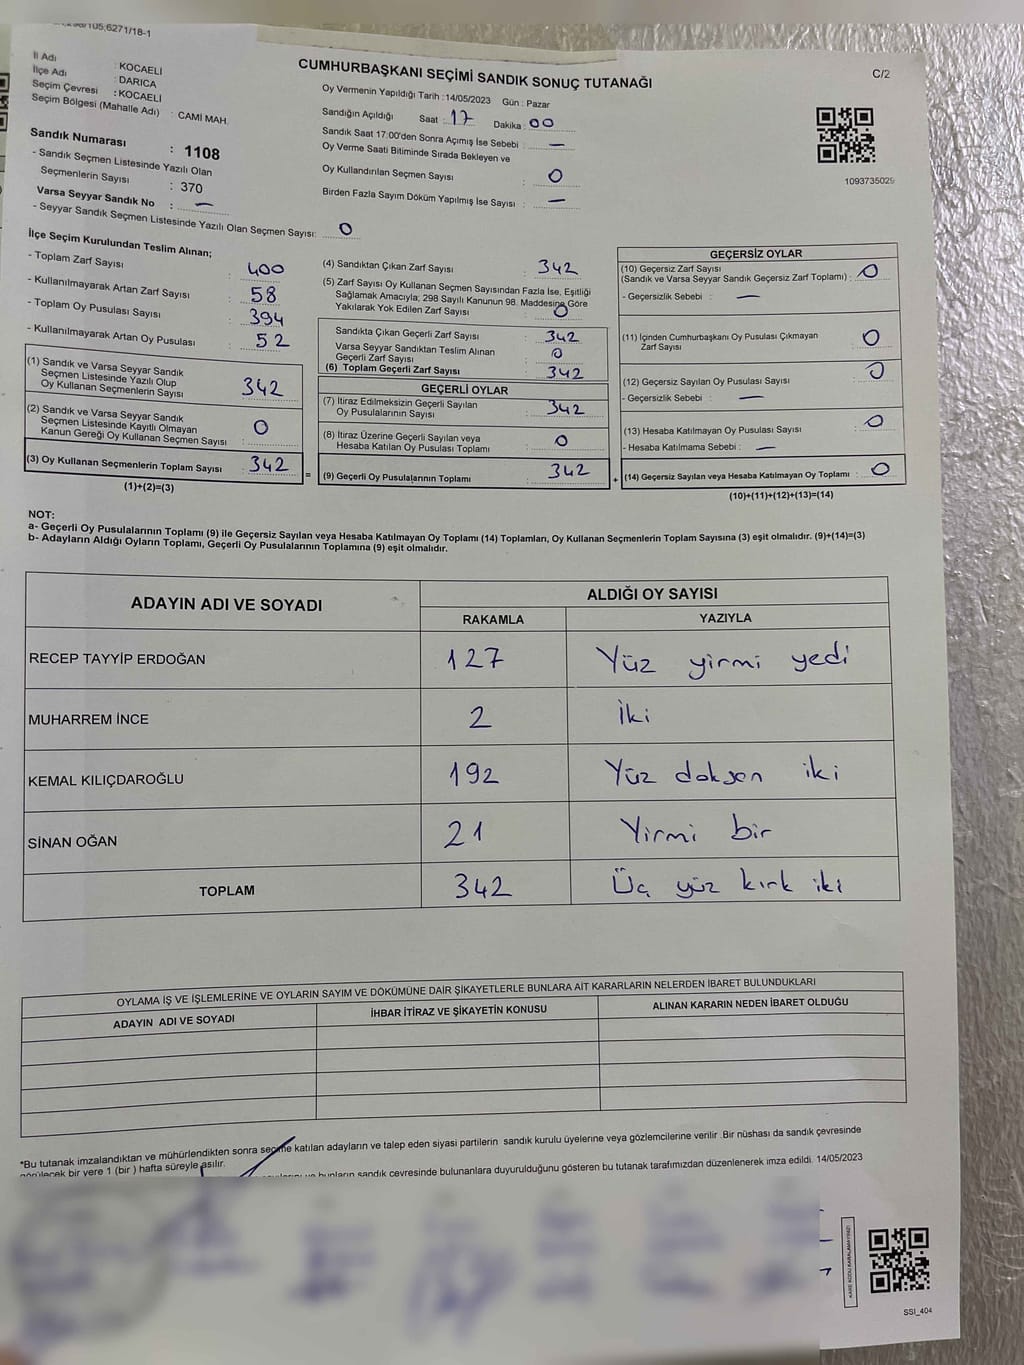 CUMHURBAŞKANI SEÇİMİ SANDIK SONUÇ TUTANAĞI
C/2
İl Adı : KOCAELİ
İlçe Adı : DARICA
Seçim Çevresi : KOCAELİ
Seçim Bölgesi (Mahalle Adı) : CAMİ MAH.
Sandık Numarası : 1108
- Sandık Seçmen Listesinde Yazılı Olan
Seçmenlerin Sayısı : 370
Varsa Seyyar Sandık No : —
- Seyyar Sandık Seçmen Listesinde Yazılı Olan Seçmen Sayısı: 0
Oy Vermenin Yapıldığı Tarih : 14/05/2023 Gün : Pazar
Sandığın Açıldığı Saat : 17 Dakika : 00
Sandık Saat 17:00'den Sonra Açımış İse Sebebi : —
Oy Verme Saati Bitiminde Sırada Bekleyen ve
Oy Kullandırılan Seçmen Sayısı : 0
Birden Fazla Sayım Döküm Yapılmış İse Sayısı : —
1093735029
İlçe Seçim Kurulundan Teslim Alınan;
- Toplam Zarf Sayısı : 400
- Kullanılmayarak Artan Zarf Sayısı : 58
- Toplam Oy Pusulası Sayısı : 394
- Kullanılmayarak Artan Oy Pusulası : 52
(1) Sandık ve Varsa Seyyar Sandık
Seçmen Listesinde Yazılı Olup
Oy Kullanan Seçmenlerin Sayısı : 342
(2) Sandık ve Varsa Seyyar Sandık
Seçmen Listesinde Kayıtlı Olmayan
Kanun Gereği Oy Kullanan Seçmen Sayısı : 0
(3) Oy Kullanan Seçmenlerin Toplam Sayısı : 342
(1)+(2)=(3)
(4) Sandıktan Çıkan Zarf Sayısı : 342
(5) Zarf Sayısı Oy Kullanan Seçmen Sayısından Fazla İse, Eşitliği
Sağlamak Amacıyla; 298 Sayılı Kanunun 98. Maddesine Göre
Yakılarak Yok Edilen Zarf Sayısı : 0
Sandıkta Çıkan Geçerli Zarf Sayısı : 342
Varsa Seyyar Sandıktan Teslim Alınan
Geçerli Zarf Sayısı : 0
(6) Toplam Geçerli Zarf Sayısı : 342
GEÇERLİ OYLAR
(7) İtiraz Edilmeksizin Geçerli Sayılan
Oy Pusulalarının Sayısı : 342
(8) İtiraz Üzerine Geçerli Sayılan veya
Hesaba Katılan Oy Pusulası Toplamı : 0
= (9) Geçerli Oy Pusulalarının Toplamı : 342
GEÇERSİZ OYLAR
(10) Geçersiz Zarf Sayısı
(Sandık ve Varsa Seyyar Sandık Geçersiz Zarf Toplamı) : 0
- Geçersizlik Sebebi : —
(11) İçinden Cumhurbaşkanı Oy Pusulası Çıkmayan
Zarf Sayısı : 0
(12) Geçersiz Sayılan Oy Pusulası Sayısı : 0
- Geçersizlik Sebebi : —
(13) Hesaba Katılmayan Oy Pusulası Sayısı : 0
- Hesaba Katılmama Sebebi : —
+ (14) Geçersiz Sayılan veya Hesaba Katılmayan Oy Toplamı : 0
(10)+(11)+(12)+(13)=(14)
NOT:
a- Geçerli Oy Pusulalarının Toplamı (9) ile Geçersiz Sayılan veya Hesaba Katılmayan Oy Toplamı (14) Toplamları, Oy Kullanan Seçmenlerin Toplam Sayısına (3) eşit olmalıdır. (9)+(14)=(3)
b- Adayların Aldığı Oyların Toplamı, Geçerli Oy Pusulalarının Toplamına (9) eşit olmalıdır.
ADAYIN ADI VE SOYADI ALDIĞI OY SAYISI
RAKAMLA YAZIYLA
RECEP TAYYİP ERDOĞAN 127 Yüz yirmi yedi
MUHARREM İNCE 2 İki
KEMAL KILIÇDAROĞLU 192 Yüz doksan iki
SİNAN OĞAN 21 Yirmi bir
TOPLAM 342 Üç yüz kırk iki
OYLAMA İŞ VE İŞLEMLERİNE VE OYLARIN SAYIM VE DÖKÜMÜNE DAİR ŞİKAYETLERLE BUNLARA AİT KARARLARIN NELERDEN İBARET BULUNDUKLARI
ADAYIN ADI VE SOYADI İHBAR İTİRAZ VE ŞİKAYETİN KONUSU ALINAN KARARIN NEDEN İBARET OLDUĞU
*Bu tutanak imzalandıktan ve mühürlendikten sonra seçime katılan adayların ve talep eden siyasi partilerin sandık kurulu üyelerine veya gözlemcilerine verilir .Bir nüshası da sandık çevresinde
görülecek bir yere 1 (bir ) hafta süreyle asılır.
bunların sandık çevresinde bulunanlara duyurulduğunu gösteren bu tutanak tarafımızdan düzenlenerek imza edildi. 14/05/2023
KARE KODU KARALAMAYINIZ!
SSI_404